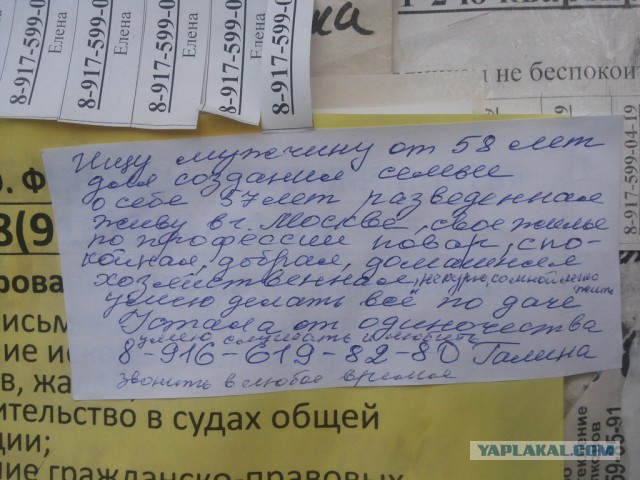 8-917-599-0
Елена
8-917-599-0
Елена
8-917-599-0
Елена
8-917-599-0
Елена
8-917-599-0
не беспокои
599-04-19
Ищу мужчину от 58 лет
для создания семьи
о себе 57 лет разведенная
живу в г. Москве, свое жилье
по профессии повар, спо-
койная, добрая, домашняя
хозяйственная, не курю, со мной легко
жить
умею делать всё по даче
Устала от одиночества
умею слушать и любить
8-916-619-82-80 Галина
звонить в любое время
8(9
ирова
письм
ние ис
в, жа
ительство в судах общей
ции;
ние гражданско-правовых
YAPLAKAL.COM